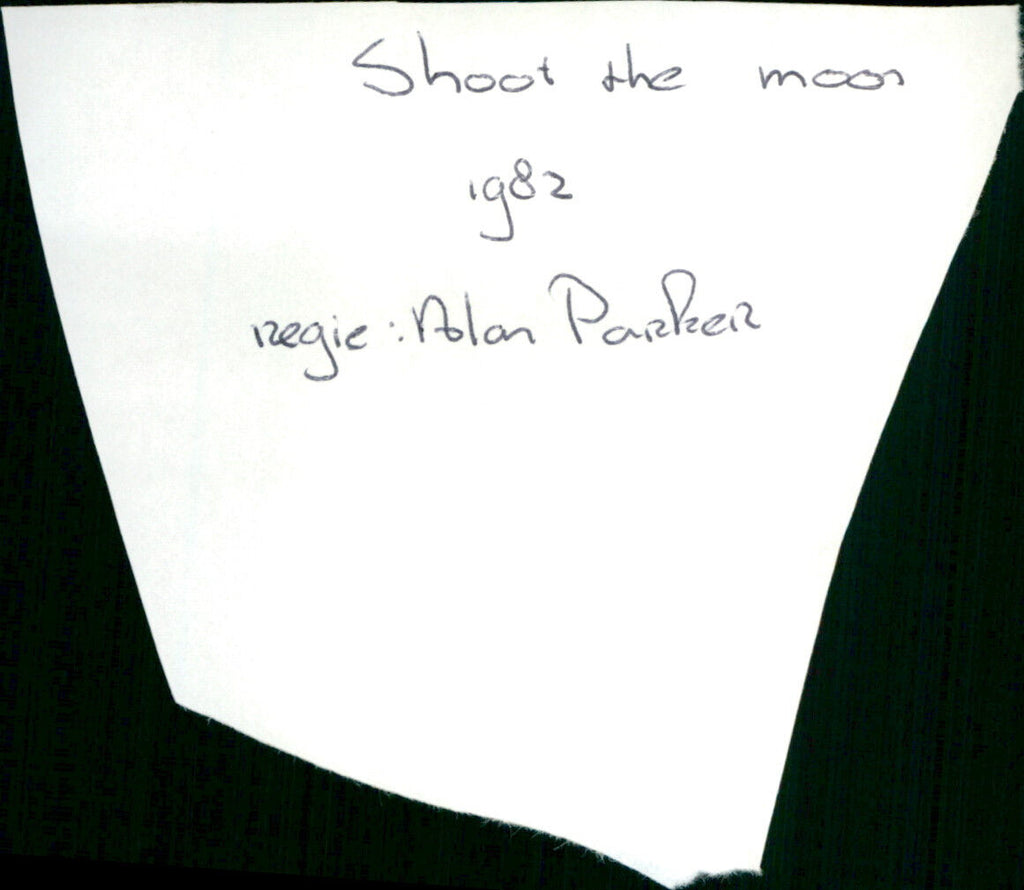 Shoot the moon
1982
regie: Alan Parker